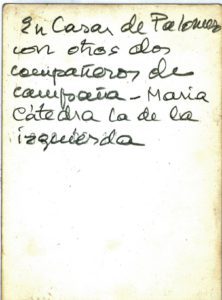 En Casar de Palomero
con otros dos
compañeros de
campaña - María
Cátedra la de la
izquierda